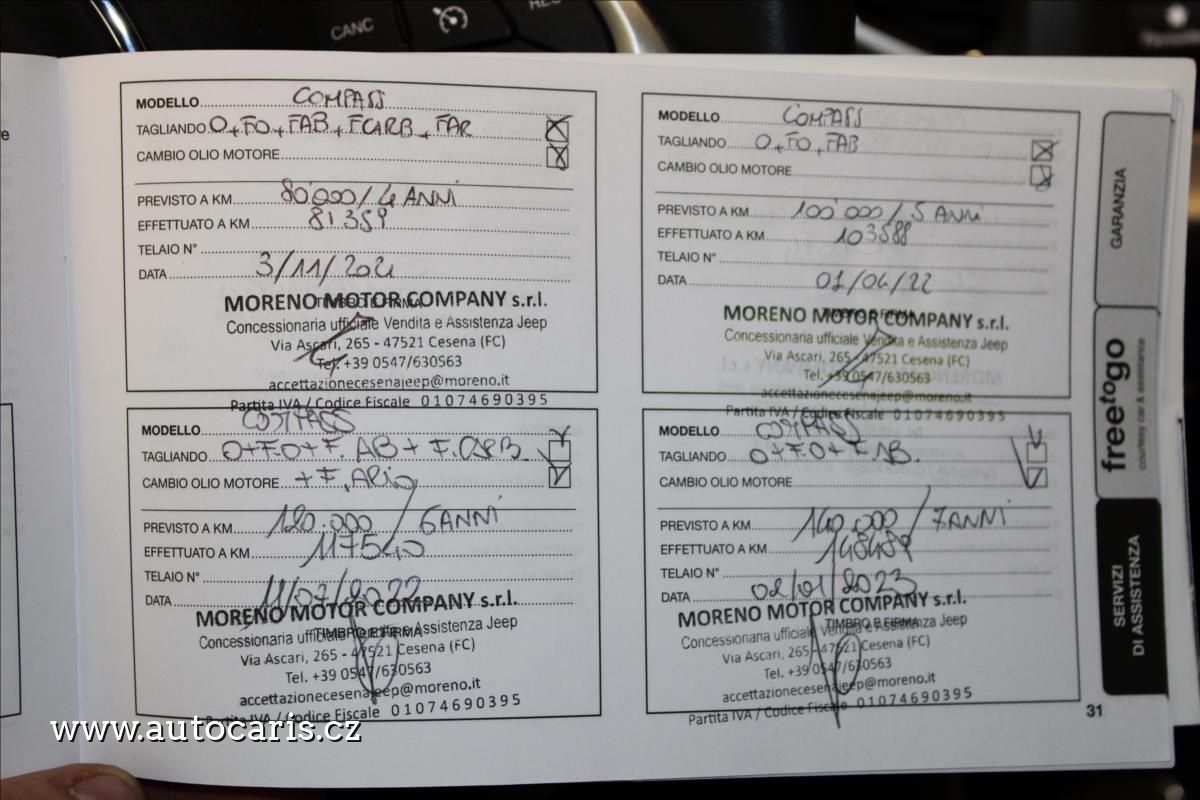 CANC
RES
MODELLO COMPASS
TAGLIANDO O+FO+FAB+FCARB+FAR
CAMBIO OLIO MOTORE
PREVISTO A KM 80'000/4 ANNI
EFFETTUATO A KM 81359
TELAIO N°
DATA 3/11/2021
TIMBRO E FIRMA
MORENO MOTOR COMPANY s.r.l.
Concessionaria ufficiale Vendita e Assistenza Jeep
Via Ascari, 265 - 47521 Cesena (FC)
Tel. +39 0547/630563
accettazionecesenajeep@moreno.it
Partita IVA / Codice Fiscale 01074690395
MODELLO COMPASS
TAGLIANDO O+FO+FAB
CAMBIO OLIO MOTORE
PREVISTO A KM 100'000/5 ANNI
EFFETTUATO A KM 103588
TELAIO N°
DATA 01/04/22
TIMBRO E FIRMA
MORENO MOTOR COMPANY s.r.l.
Concessionaria ufficiale Vendita e Assistenza Jeep
Via Ascari, 265 - 47521 Cesena (FC)
Tel. +39 0547/630563
accettazionecesenajeep@moreno.it
Partita IVA / Codice Fiscale 01074690395
MODELLO COMPASS
TAGLIANDO O+F.O+F.AB+F.CARB.
CAMBIO OLIO MOTORE +F.ARIA
PREVISTO A KM 120.000/6ANNI
EFFETTUATO A KM 117540
TELAIO N°
DATA 11/07/2022
TIMBRO E FIRMA
MORENO MOTOR COMPANY s.r.l.
Concessionaria ufficiale Vendita e Assistenza Jeep
Via Ascari, 265 - 47521 Cesena (FC)
Tel. +39 0547/630563
accettazionecesenajeep@moreno.it
Partita IVA / Codice Fiscale 01074690395
MODELLO COMPASS
TAGLIANDO O+F.O+F.AB.
CAMBIO OLIO MOTORE
PREVISTO A KM 140.000/7ANNI
EFFETTUATO A KM
TELAIO N°
DATA 02/01/2023
TIMBRO E FIRMA
MORENO MOTOR COMPANY s.r.l.
Concessionaria ufficiale Vendita e Assistenza Jeep
Via Ascari, 265 - 47521 Cesena (FC)
Tel. +39 0547/630563
accettazionecesenajeep@moreno.it
Partita IVA / Codice Fiscale 01074690395
GARANZIA
freetogo
courtesy car & assistance
SERVIZI
DI ASSISTENZA
31
www.autocaris.cz